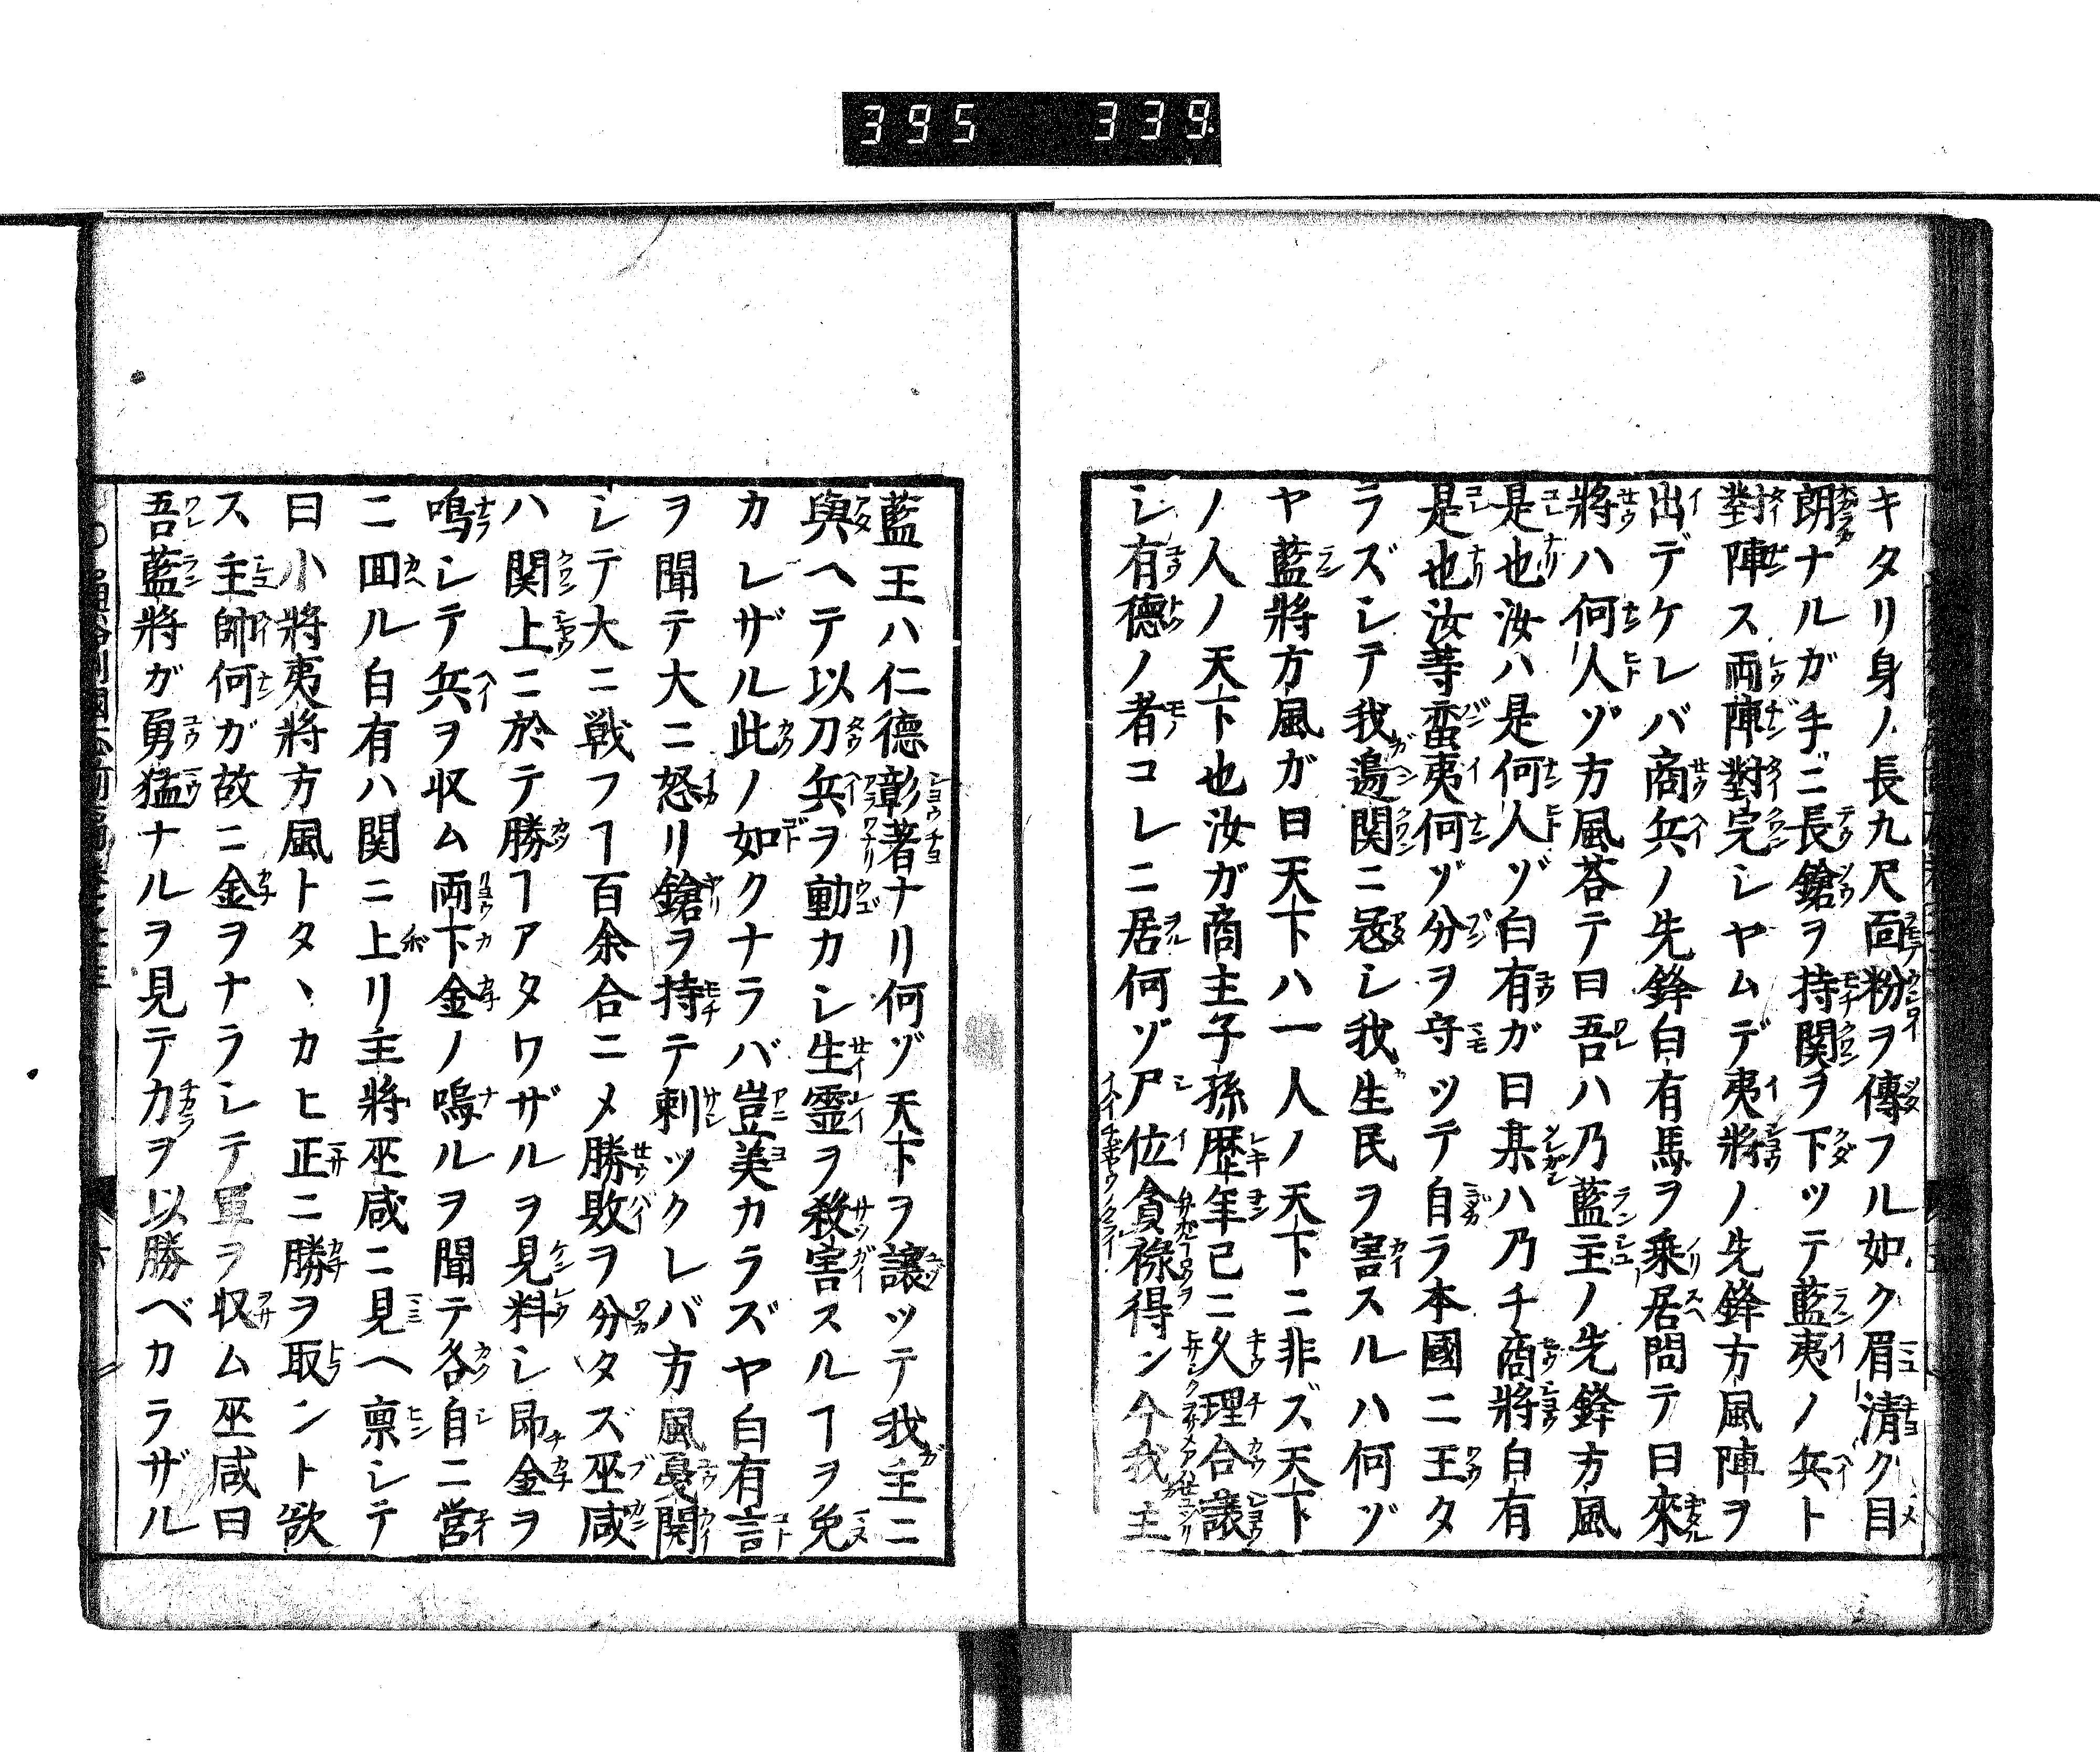 395 339
キタリ身ノ長九尺面粉ヲ傳フル如ク眉清ク目
朗ナルガ手ニ長鎗ヲ持関ヲ下ツテ藍夷ノ兵ト
對陣ス両陣對完シヤムデ夷將ノ先鋒方風陣ヲ
出デケレバ商兵ノ先鋒白有馬ヲ乗居問テ曰來
將ハ何人ゾ方風荅テ曰吾ハ乃藍主ノ先鋒方風
是也汝ハ是何人ゾ白有ガ曰某ハ乃チ商將白有
是也汝等蛮夷何ゾ分ヲ守ツテ自ラ本國ニ王タ
ラズシテ我邉関ニ冦シ我生民ヲ害スルハ何ゾ
ヤ藍將方風ガ曰天下ハ一人ノ天下ニ非ズ天下
ノ人ノ天下也汝ガ商主子孫歴年已ニ久理合讓
シ有德ノ者コレニ居何ゾ尸位貪祿得ン今我主
藍王ハ仁德彰著ナリ何ゾ天下ヲ讓ツテ我主ニ
與ヘテ以刀兵ヲ動カシ生霊ヲ殺害スルヿヲ免
カレザル此ノ如クナラバ豈美カラズヤ白有言
ヲ聞テ大ニ怒リ鎗ヲ持テ刺ツクレバ方風戞関
シテ大ニ戦フヿ百余合ニメ勝敗ヲ分タズ巫咸
ハ関上ニ於テ勝ヿアタワザルヲ見料シ昻金ヲ
鳴シテ兵ヲ収ム両下金ノ鳴ルヲ聞テ各自ニ營
ニ囬ル白有ハ関ニ上リ主將巫咸ニ見ヘ禀シテ
曰小將夷將方風トタヽカヒ正ニ勝ヲ取ント欲
ス主帥何ガ故ニ金ヲナラシテ軍ヲ収ム巫咸曰
吾藍將ガ勇猛ナルヲ見テ力ヲ以勝ベカラザル